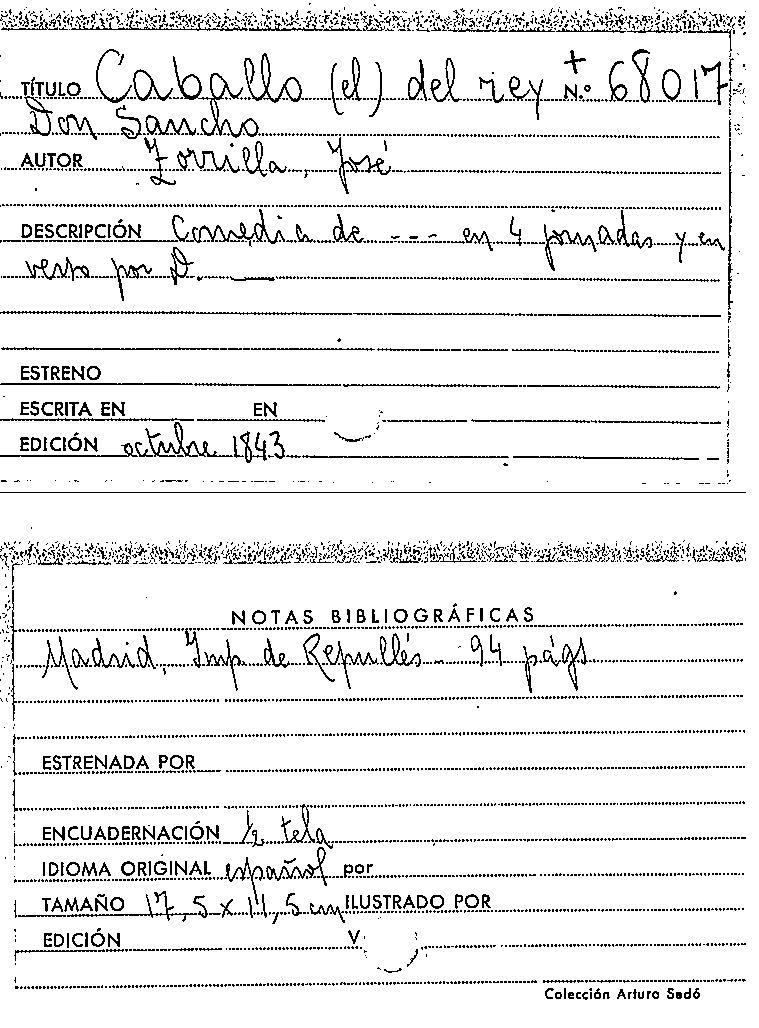 TÍTULO Caballo (el) del rey + N.º 68017
Don Sancho
AUTOR Zorrilla, José
DESCRIPCIÓN Comedia de --- en 4 jornadas y en
verso por D. ___
ESTRENO
ESCRITA EN EN
EDICIÓN octubre 1843
NOTAS BIBLIOGRÁFICAS
Madrid, Imp. de Repullés - 94 págs
ESTRENADA POR
ENCUADERNACIÓN ½ tela
IDIOMA ORIGINAL español por
TAMAÑO 17,5 x 11,5 cm ILUSTRADO POR
EDICIÓN V
Colección Arturo Sedó